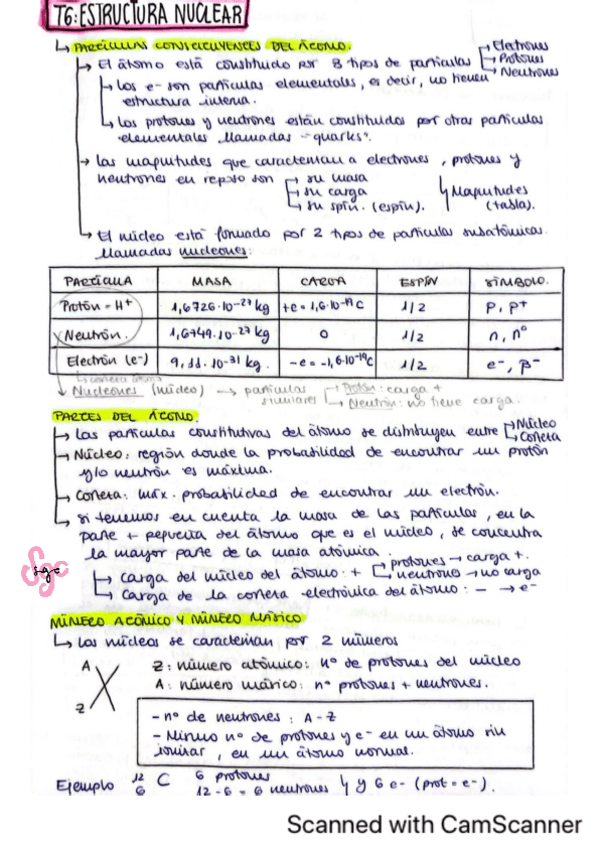 T6: ESTRUCTURA NUCLEAR
↳ PARTÍCULAS CONSTITUYENTES DEL ÁTOMO.
→ El átomo está constituido por 3 tipos de partículas → Electrones → Protones → Neutrones
↳ Los e- son partículas elementales, es decir, no tienen estructura interna.
↳ Los protones y neutrones están constituidos por otras partículas elementales llamadas "quarks".
→ Las magnitudes que caracterizan a electrones, protones y
neutrones en reposo son → su masa
→ su carga
→ su spin. (espín).
↳ Magnitudes (tabla).
↳ El núcleo está formado por 2 tipos de partículas subatómicas
llamadas nucleones:
PARTÍCULA MASA CARGA ESPÍN SÍMBOLO.
Protón - H+ 1,6726·10-27 kg +e = 1,6·10-19 C 1/2 P, P+
Neutrón. 1,6749·10-27 kg 0 1/2 n, n0
Electrón (e-) 9,11·10-31 kg. -e = -1,6·10-19C 1/2 e-, β-
↳ corteza átomo
Nucleones (núcleo) → partículas similares → Protón: carga +
→ Neutrón: no tiene carga.
PARTES DEL ÁTOMO.
↳ Las partículas constitutivas del átomo se distribuyen entre → Núcleo → Corteza
→ Núcleo: región donde la probabilidad de encontrar un protón
y/o neutrón es máxima.
→ Corteza: máx. probabilidad de encontrar un electrón.
↳ si tenemos en cuenta la masa de las partículas, en la
parte + pequeña del átomo que es el núcleo, se concentra
la mayor parte de la masa atómica.
sgc
↳ Carga del núcleo del átomo: + → protones → carga +.
→ neutrones → no carga
↳ Carga de la corteza electrónica del átomo: - → e-
NÚMERO ATÓMICO Y NÚMERO MÁSICO
↳ Los núcleos se caracterizan por 2 números
A
X
Z
Z: número atómico: nº de protones del núcleo
A: número másico: nº protones + neutrones.
- nº de neutrones: A-Z
- Mismo nº de protones y e- en un átomo sin
ionizar, en un átomo normal.
Ejemplo 12 6 C 6 protones
12-6 = 6 neutrones y 6 e- (prot = e-).
Scanned with CamScanner